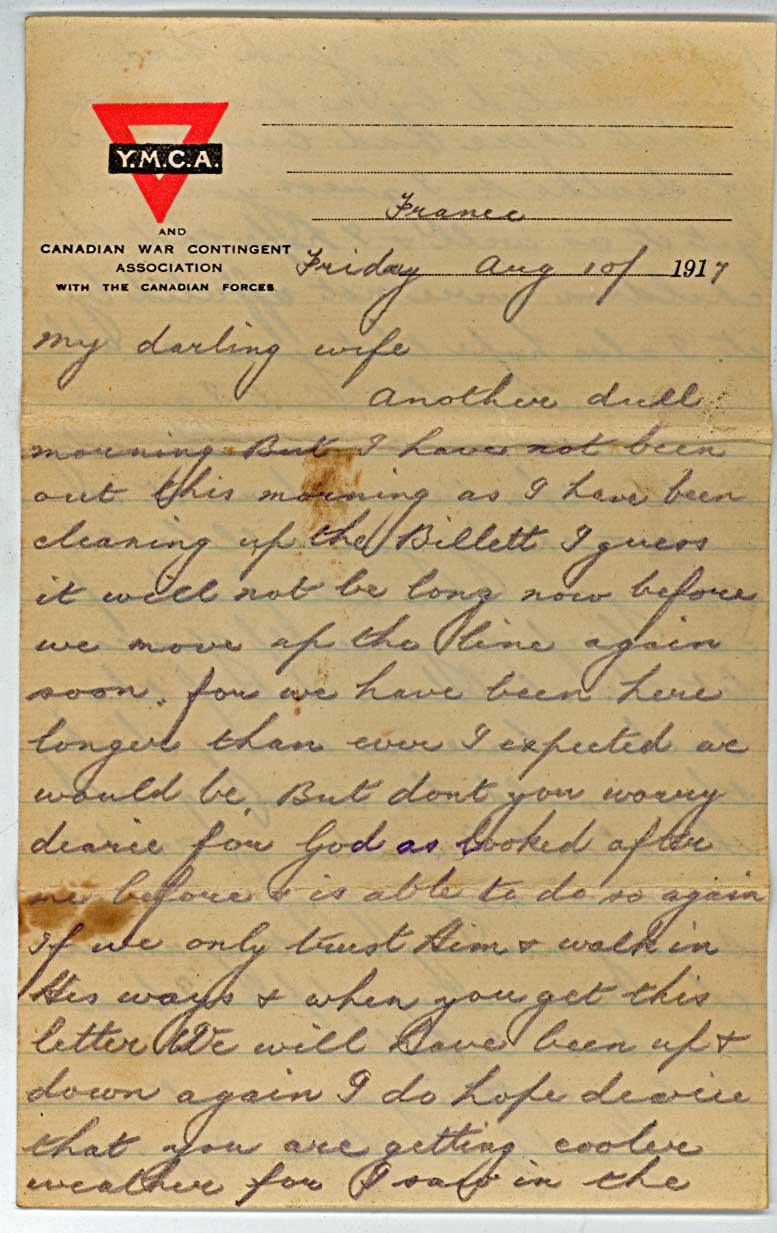 Y.M.C.A.
AND
CANADIAN WAR CONTINGENT
ASSOCIATION
WITH THE CANADIAN FORCES.
France
Friday Aug 10/ 1917
My darling wife
Another dull
morning But I have not been
out this morning as I have been
cleaning up the Billett I guess
it will not be long now before
we move up the line again
soon. for we have been here
longer than ever I expected we
would be. But dont you worry
dearie for God as looked after
me before & is able to do so again
If we only trust Him & walk in
His ways & when you get this
letter We will have been up &
down again I do hope dearie
that you are getting cooler
weather for I saw in the